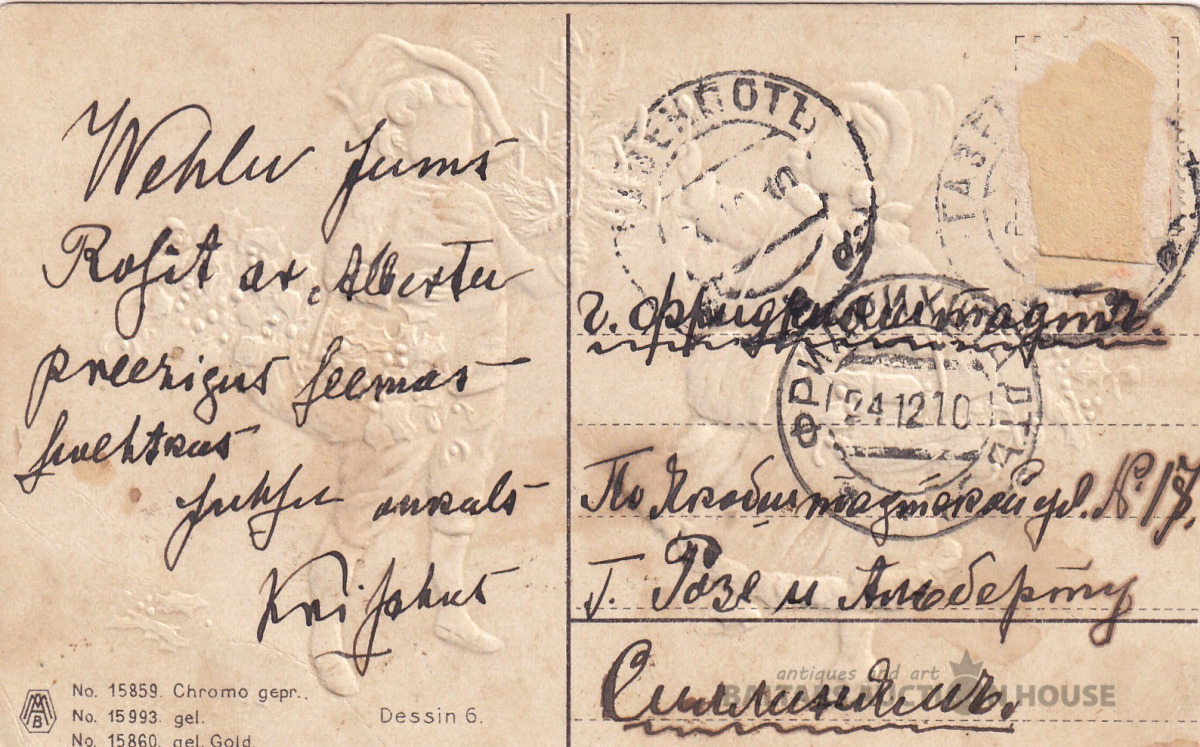 Wehlu jums
Rosit ar Albertu
preezigus seemas
swehtkus
juhsu onkuls
Krisahns
No. 15859. Chromo gepr..
No. 15993. gel.
No. 15860. gel. Gold.
Dessin 6.
MAB
ГАЗЕНПОТЪ
ГАЗЕ
24 12 10
г. Фридрихштадтъ.
По Якобштадтской ул. № 17.
Г. Розе и Альберту
Силлинямъ.
antiques and art
BALTARS AUCTION HOUSE